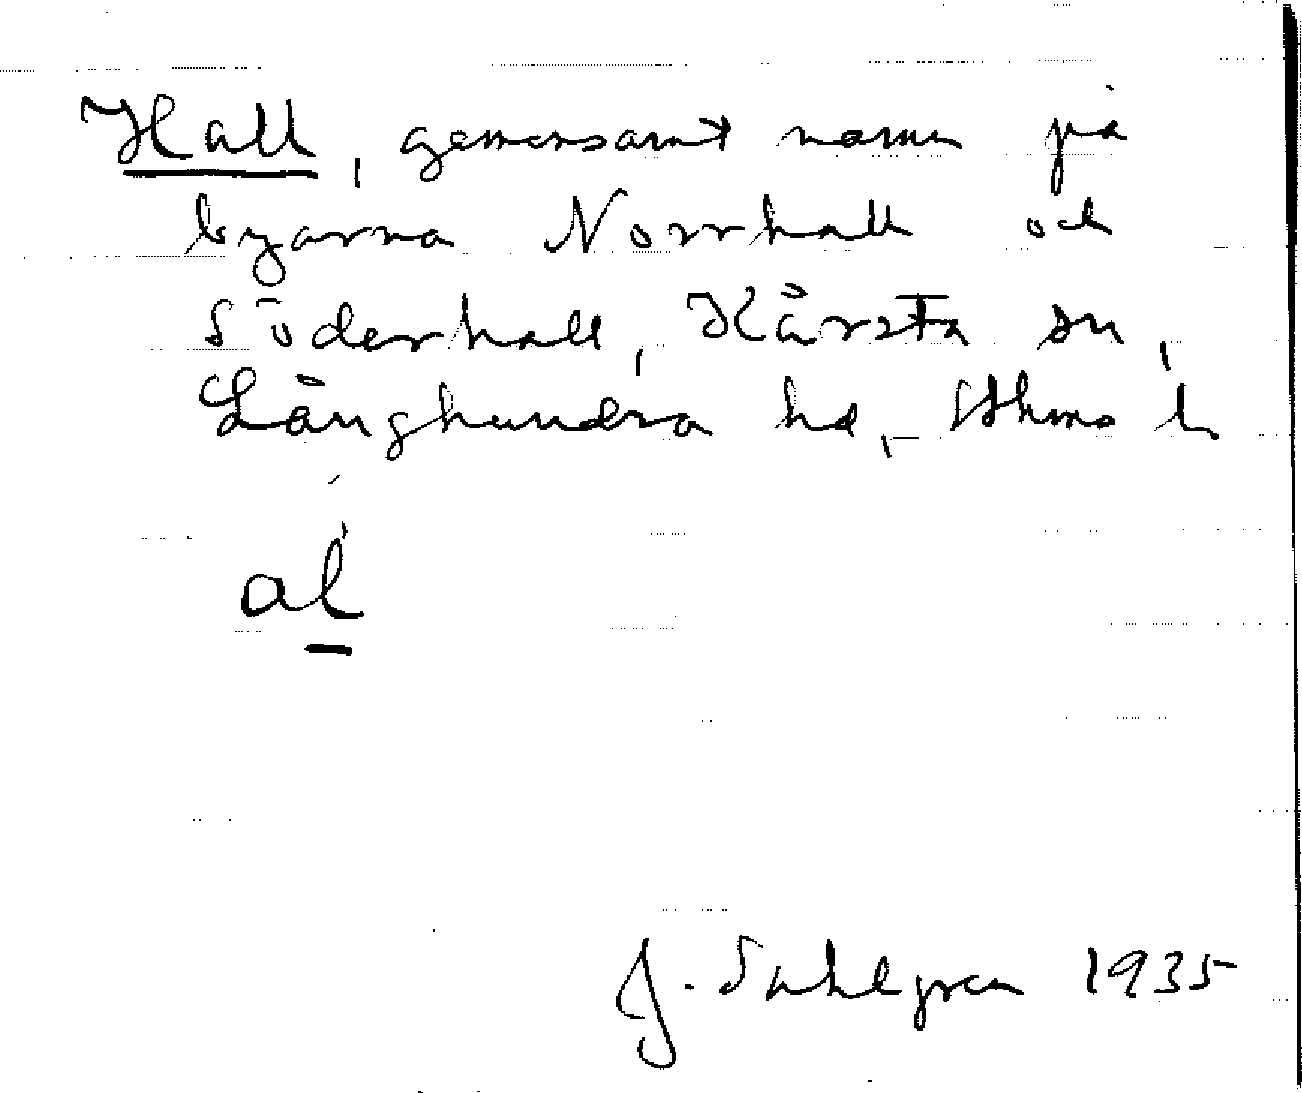 Hall, gemensamt namn på
byarna Norrhall och
Söderhall, Kårsta sn,
Långhundra hd, Sthms l.
al
J. Sahlgren 1935